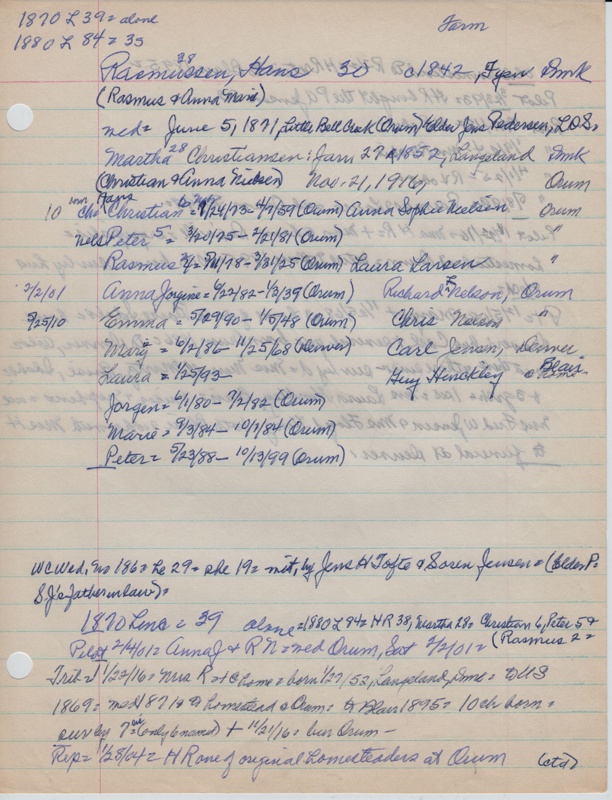 1870 L 39 = alone
Farm
1880 L 84 = 35
Rasmussen, Hans 38 30 c1842, Fyen Dmk
(Rasmus & Anna Marie)
med = June 5, 1871, Little Bell Creek (Orum) Elder Jens Pedersen, LDS =
Martha 28 Christiansen: Jan 27 1852, Langland Dmk
(Christian & Anna Nielsen) Nov. 21, 1916 Orum
10 ch = Christian 6 = 4/24/73 - 4/7/59 (Orum) Anna Sophie Nielsen Orum
Nels Peter 5 = 3/20/75 - 2/21/81 (Orum) "
Rasmus 2 = /78 - 3/31/25 (Orum) Laura Larsen "
2/2/01 Anna Jorgine = 6/22/82 - 1/3/39 (Orum) Richard L Nelson, Orum
5/25/10 Emma = 5/29/90 - 1/5/48 (Orum) Chris Nelson "
Mary = 6/2/86 - 11/25/68 (Denver) Carl Jensen, Denver
Laura = 1/25/93 - Guy Hinckley Blair
Jorgen = 6/1/80 - 7/2/82 (Orum)
Marie = 9/3/84 - 10/7/84 (Orum)
Peter = 5/23/88 - 10/13/99 (Orum)
WC Wed, no 186 = he 29 = she 19 = wit, by Jens H Tofte & Soren Jensen = (Elder P =
S J's father in law) =
1870 Line = 39 alone = 1880 L 84 = H R 38, Martha 28 = Christian 6, Peter 5 &
(Rasmus 2 =
Pilot 2/4/01 = Anna J & R N = med Orum, Sat 2/2/01 =
Trib = 11/22/16 = Mrs R = at home = born 1/27/52, Langeland, Dmk = to US
1869 = med 1871 = to homestead @ Orum = to Blair 1895 = 10 ch born =
sur by 7 = (only 6 named) + 11/21/16 = bur Orum -
Rep = 1/28/04 = H R one of original homesteaders at Orum (ctd)